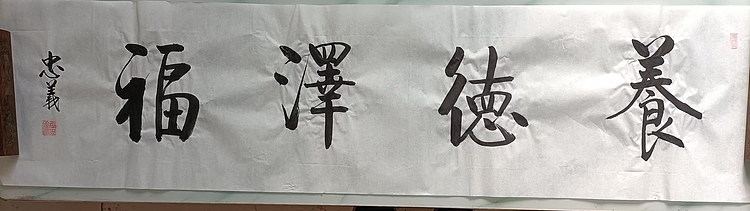 養德澤福
忠義